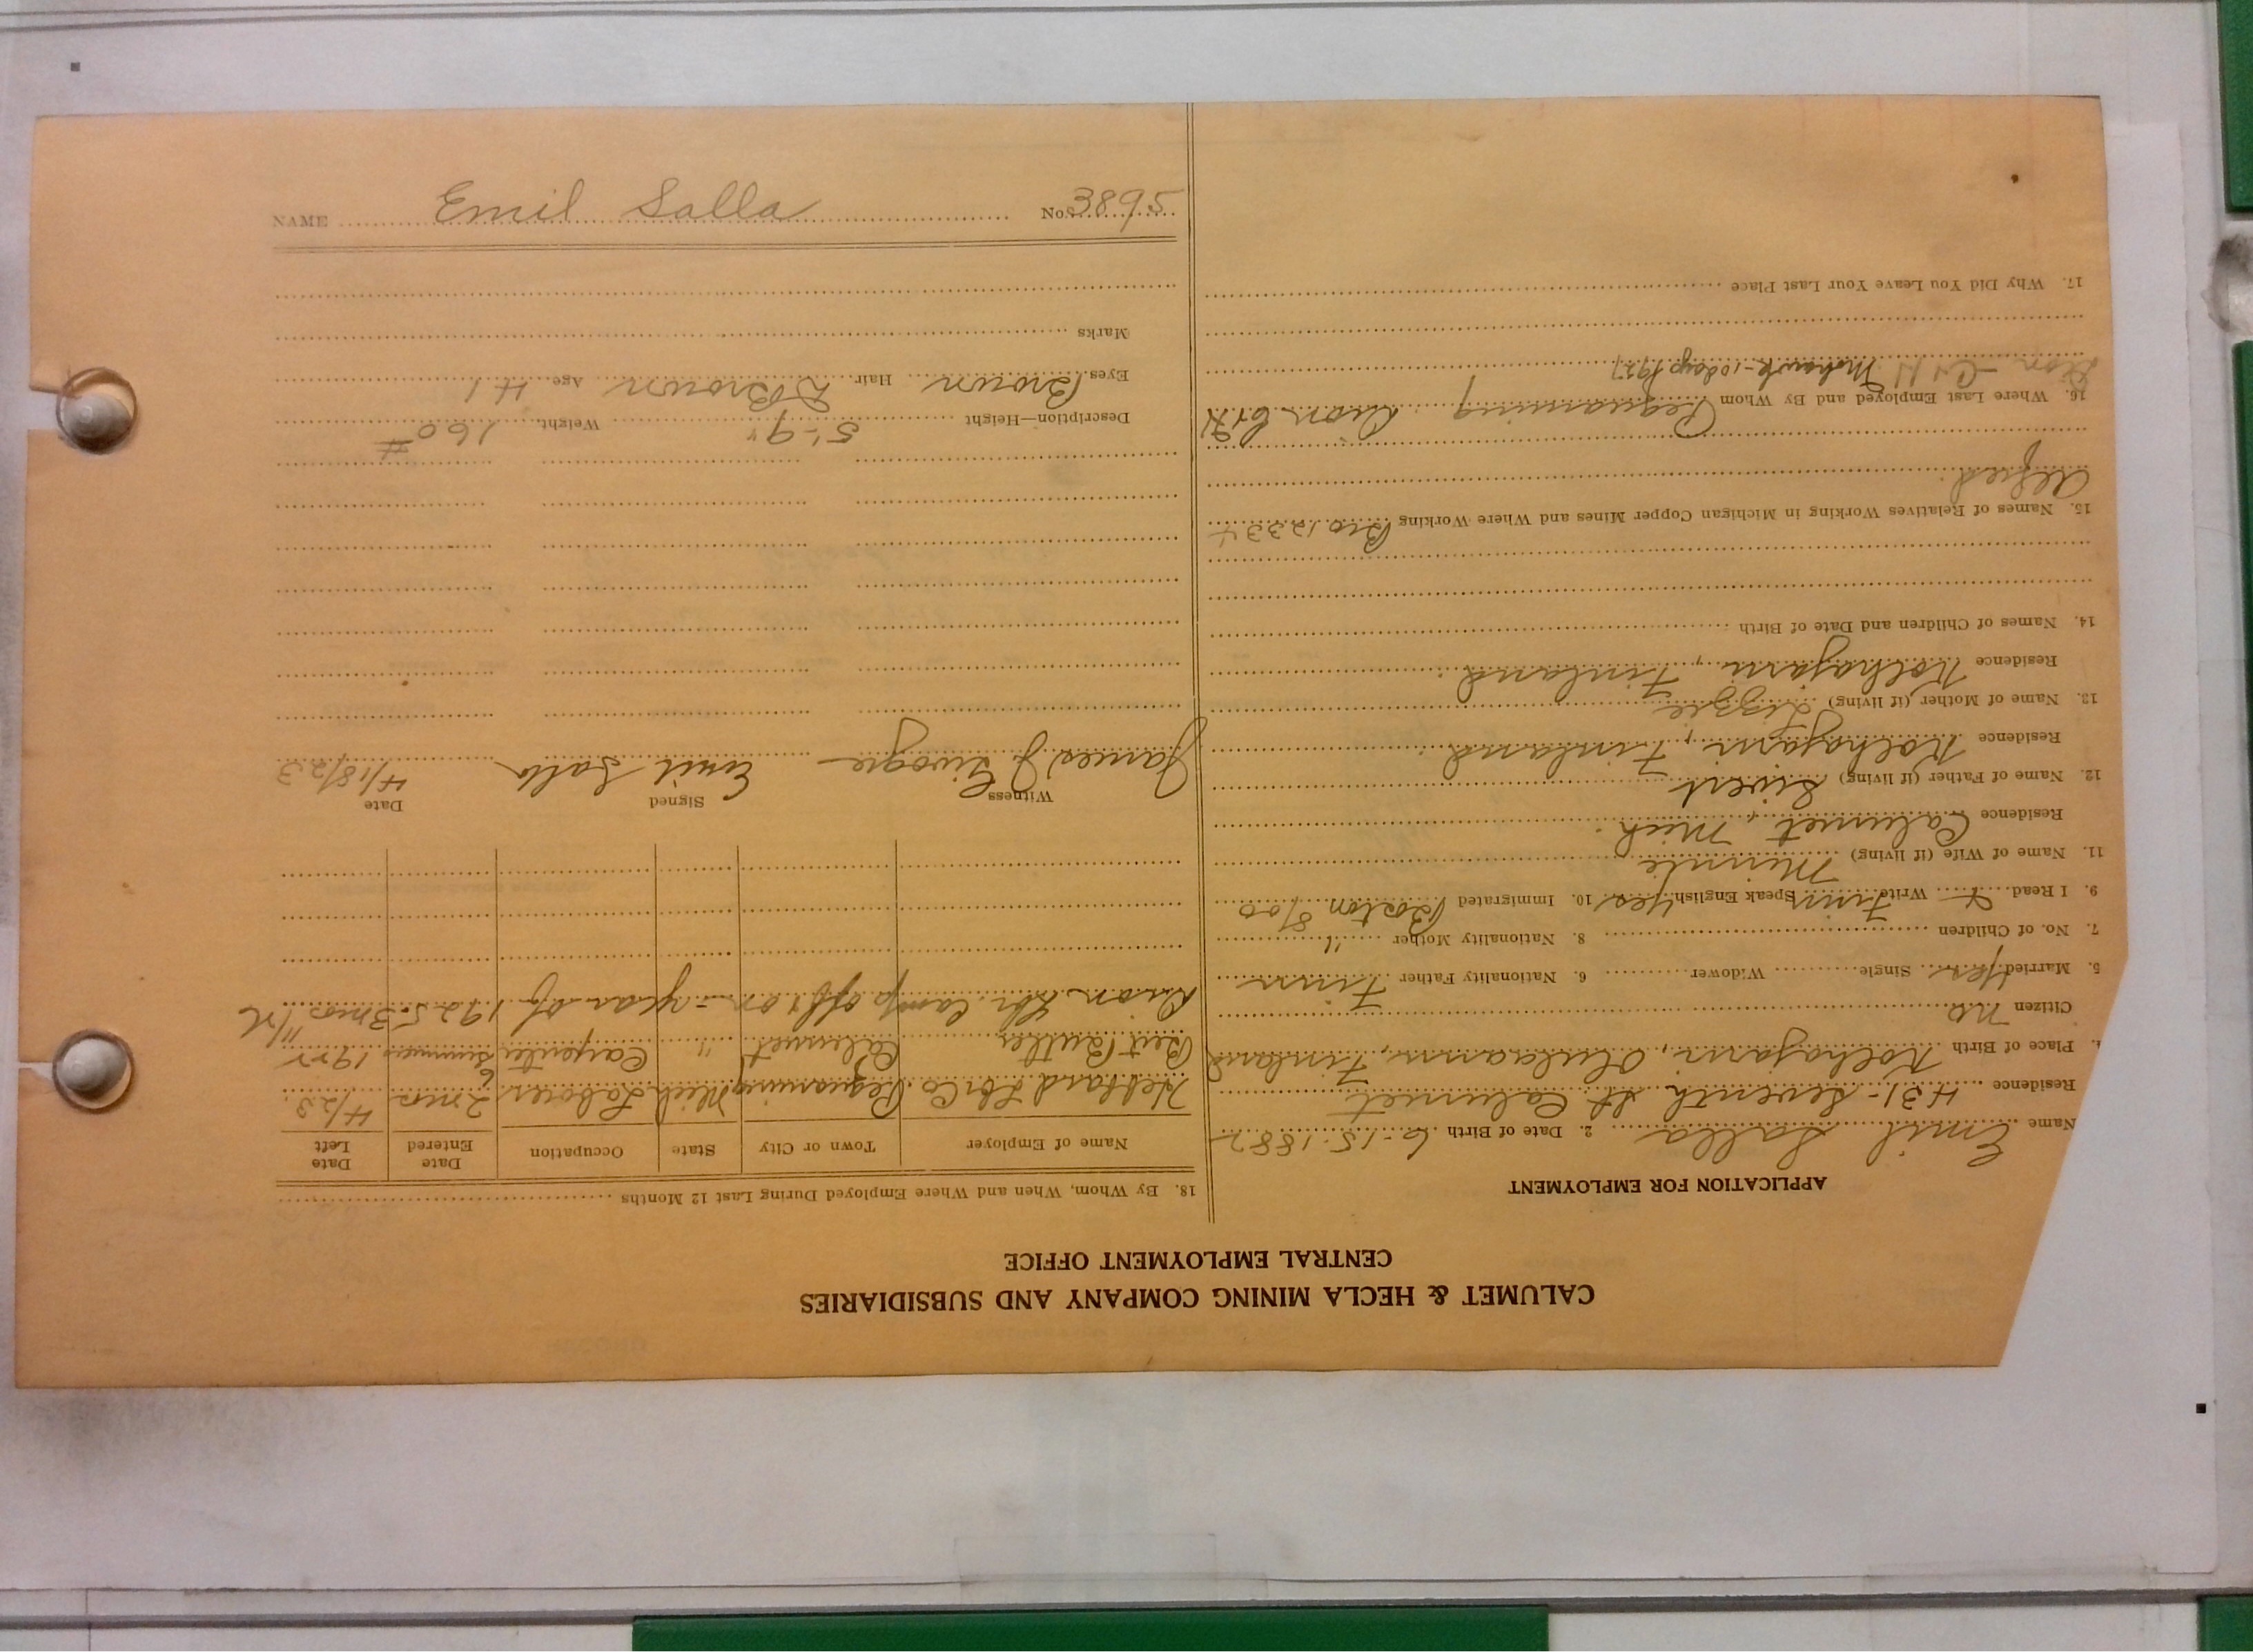 CALUMET & HECLA MINING COMPANY AND SUBSIDIARIES
CENTRAL EMPLOYMENT OFFICE
APPLICATION FOR EMPLOYMENT
Name Emil Salla 2. Date of Birth 6-15-1882
Residence 431-Seventh St. Calumet
Place of Birth Kolhajarvi, Finland
Citizen No
5. Married Yes Single Widower 6. Nationality Father Finn
7. No. of Children 8. Nationality Mother "
9. I Read & Write Finn Speak English Yes 10. Immigrated Boston 8/00
11. Name of Wife (if living) Minnie
Residence Calumet, Mich.
12. Name of Father (if living) Sivert
Residence Kolhajarvi, Finland
13. Name of Mother (if living) Lizzie
Residence Kolhajarvi, Finland
14. Names of Children and Date of Birth
15. Names of Relatives Working in Michigan Copper Mines and Where Working Bro 12334
Alfred
16. Where Last Employed and By Whom Pequaming
C & H Mohawk-10 days 1927
17. Why Did You Leave Your Last Place
18. By Whom, When and Where Employed During Last 12 Months
Name of Employer Town or City State Occupation Date Entered Date Left
Hebbard Lbr Co. Pequaming Mich Laborer 2 mos 4/23
Bert Butler Calumet " Carpenter Summer 1922
Lbr. Camp off & on - year of 1925. 3 mos.
Witness Signed Date
James J. Emil Salla 4/18/23
Description—Height 5'-9" Weight 160 #
Eyes Brown Hair D Brown Age 41
Marks
NAME Emil Salla No. 3895